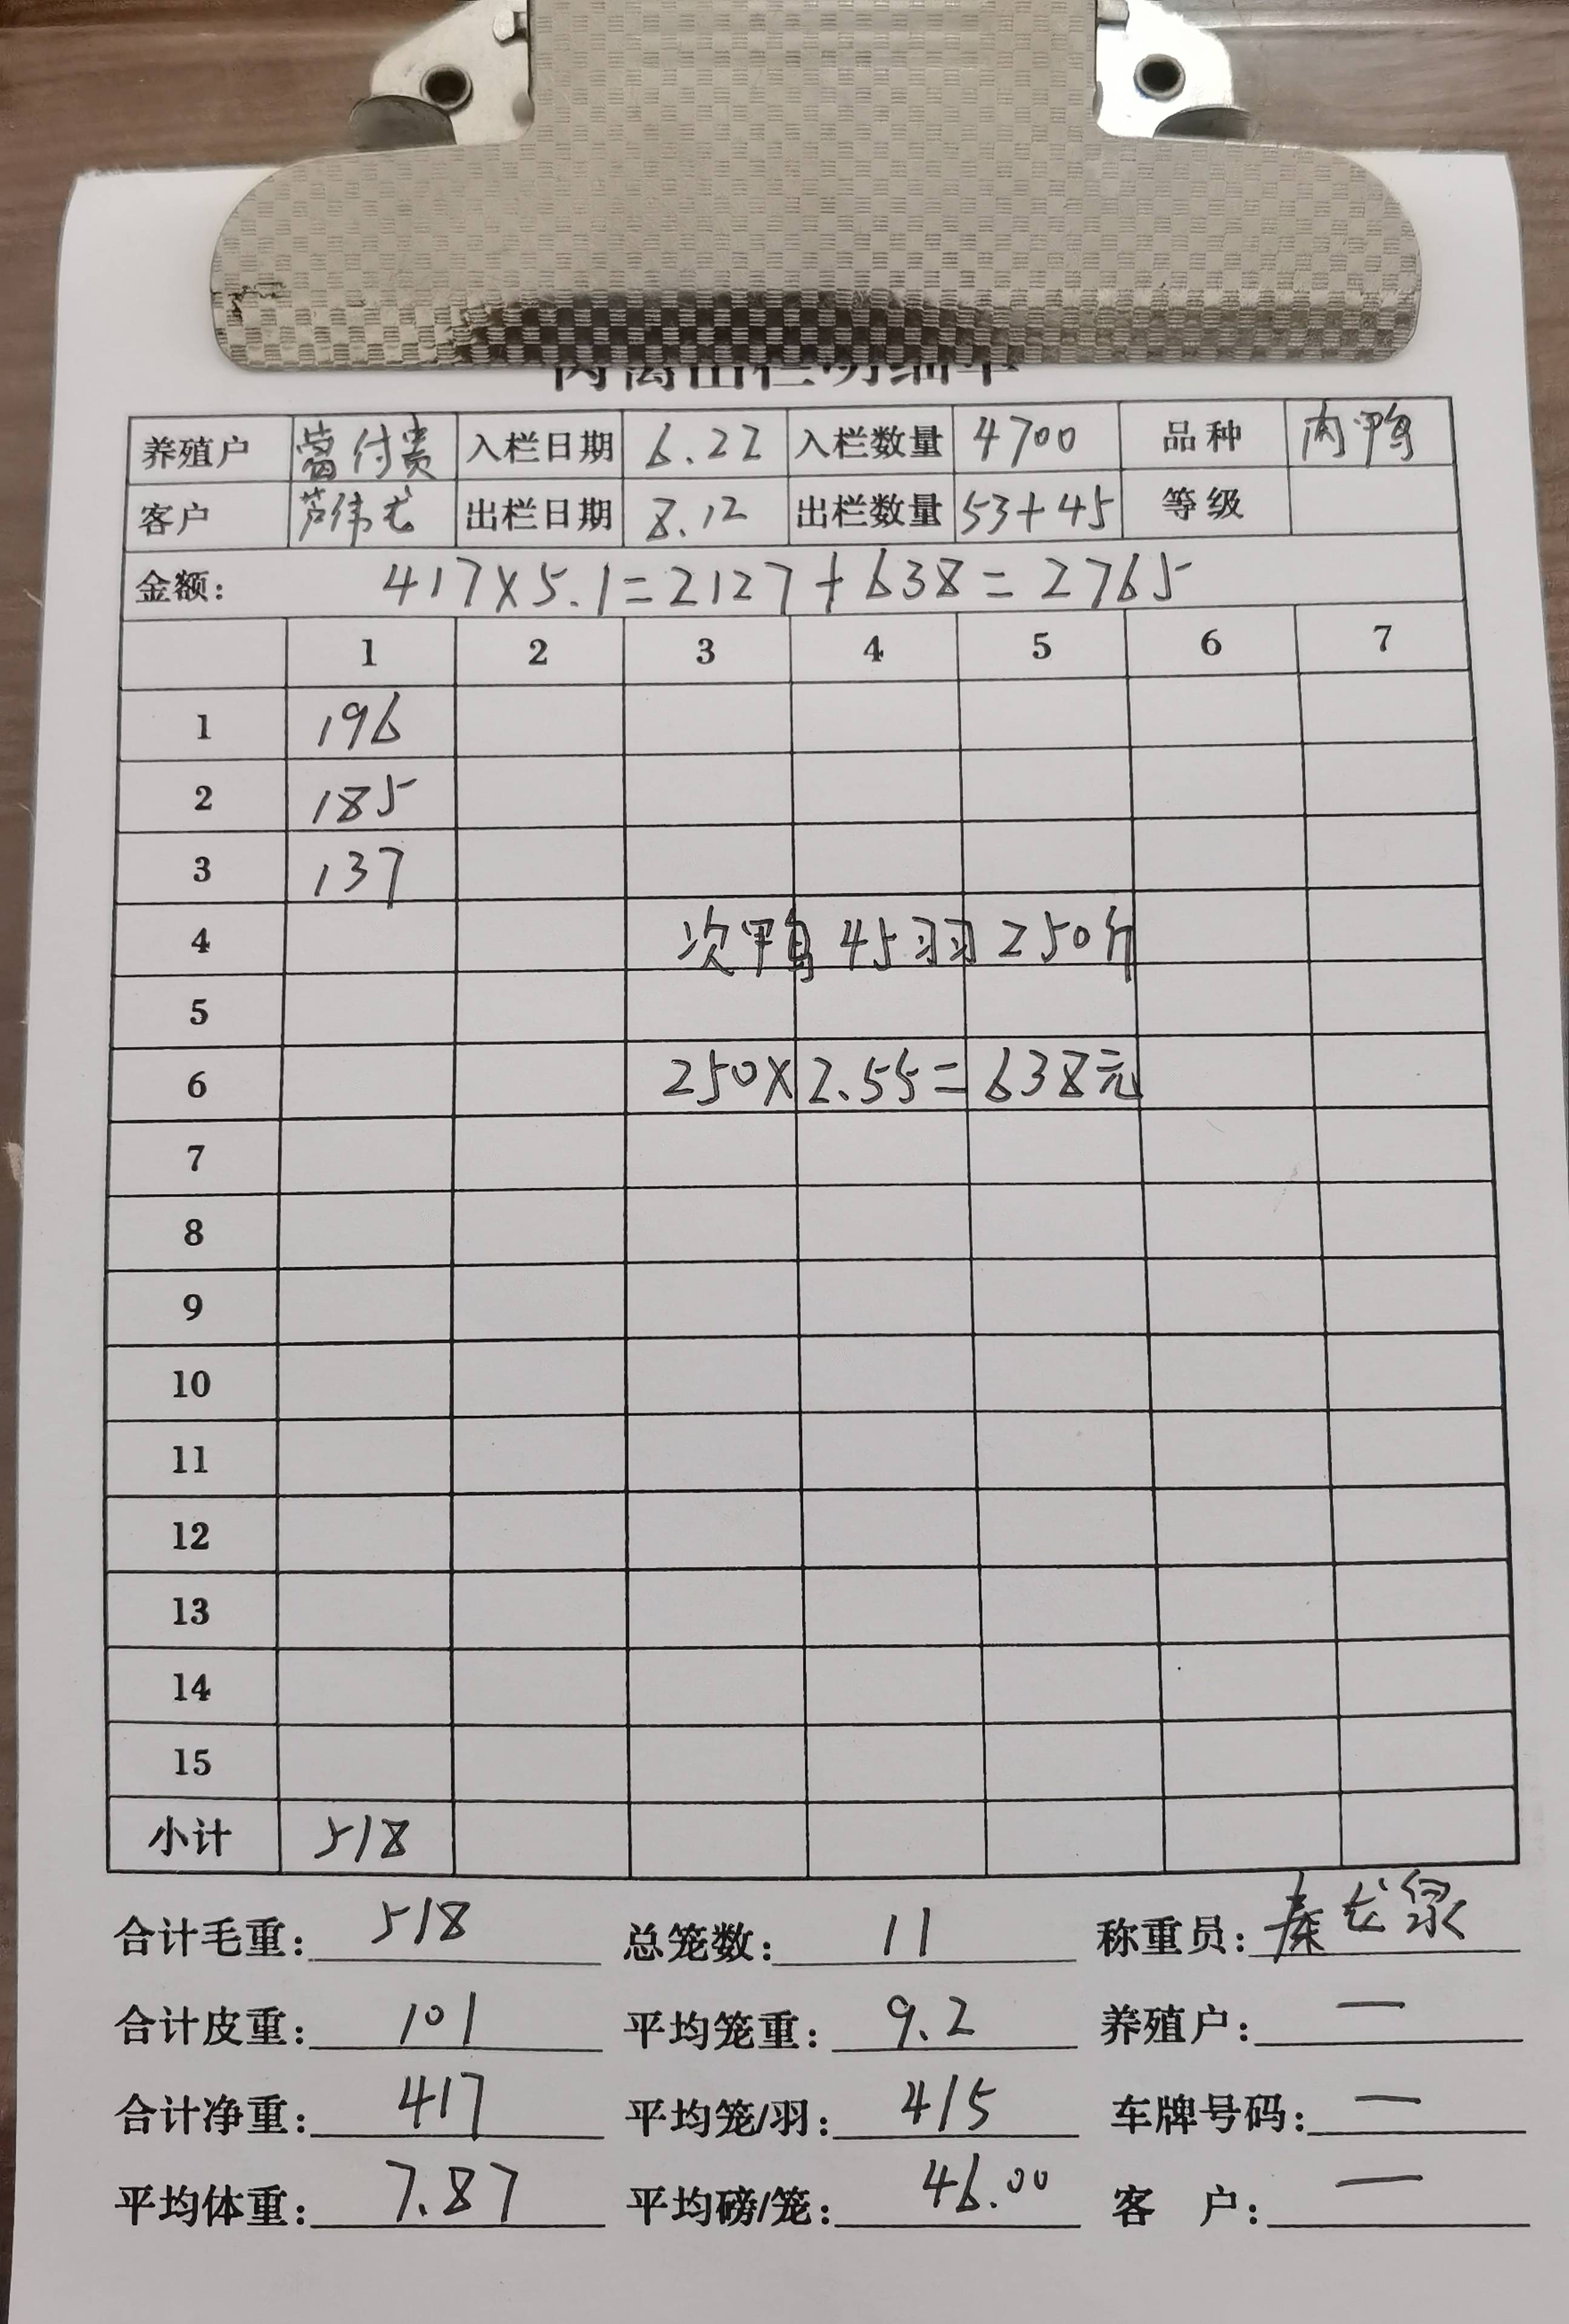 养殖户 付贵 入栏日期 6.22 入栏数量 4700 品种 肉鸭
客户 芦伟 出栏日期 8.12 出栏数量 53+45 等级
金额: 417×5.1=2127+638=2765
1 2 3 4 5 6 7
1 196
2 185
3 137
4 次鸭45羽250斤
5
6 250×2.55=638元
7
8
9
10
11
12
13
14
15
小计 518
合计毛重: 518 总笼数: 11 称重员: 秦长泉
合计皮重: 101 平均笼重: 9.2 养殖户: —
合计净重: 417 平均笼/羽: 4/5 车牌号码: —
平均体重: 7.87 平均磅/笼: 46.00 客 户: —